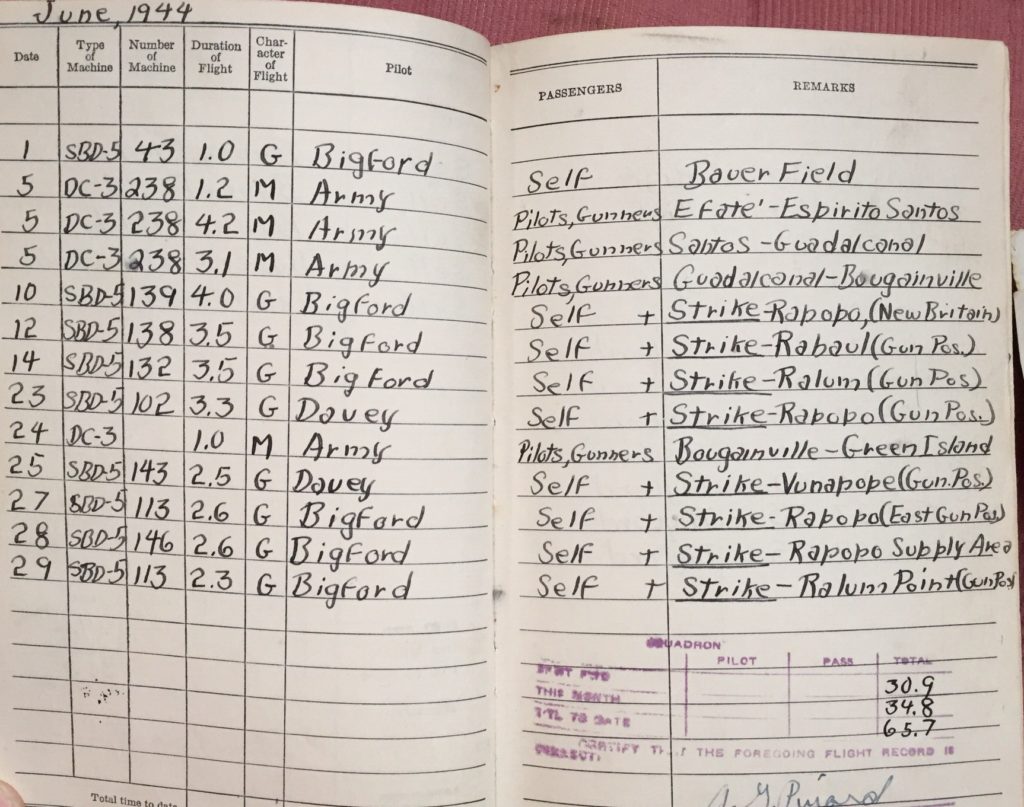 June, 1944
Date Type of Machine Number of Machine Duration of Flight Char-acter of Flight Pilot PASSENGERS REMARKS
1 SBD-5 43 1.0 G Bigford Self Bauer Field
5 DC-3 238 1.2 M Army Pilots, Gunners Efate'-Espirito Santos
5 DC-3 238 4.2 M Army Pilots, Gunners Santos-Guadalcanal
5 DC-3 238 3.1 M Army Pilots, Gunners Guadalcanal-Bougainville
10 SBD-5 139 4.0 G Bigford Self + Strike-Rapopo, (New Britain)
12 SBD-5 138 3.5 G Bigford Self + Strike-Rabaul (Gun Pos.)
14 SBD-5 132 3.5 G Bigford Self + Strike-Ralum (Gun Pos)
23 SBD-5 102 3.3 G Davey Self + Strike-Rapopo (Gun Pos.)
24 DC-3 1.0 M Army Pilots, Gunners Bougainville-Green Island
25 SBD-5 143 2.5 G Davey Self + Strike-Vunapope (Gun. Pos.)
27 SBD-5 113 2.6 G Bigford Self + Strike-Rapopo (East Gun Pos)
28 SBD-5 146 2.6 G Bigford Self + Strike-Rapopo Supply Area
29 SBD-5 113 2.3 G Bigford Self + Strike-Ralum Point (Gun Pos)
SQUADRON
PILOT PASS TOTAL
30.9
THIS MONTH 34.8
TTL TO DATE 65.7
CERTIFY THAT THE FOREGOING FLIGHT RECORD IS
CORRECT:
Total time to date